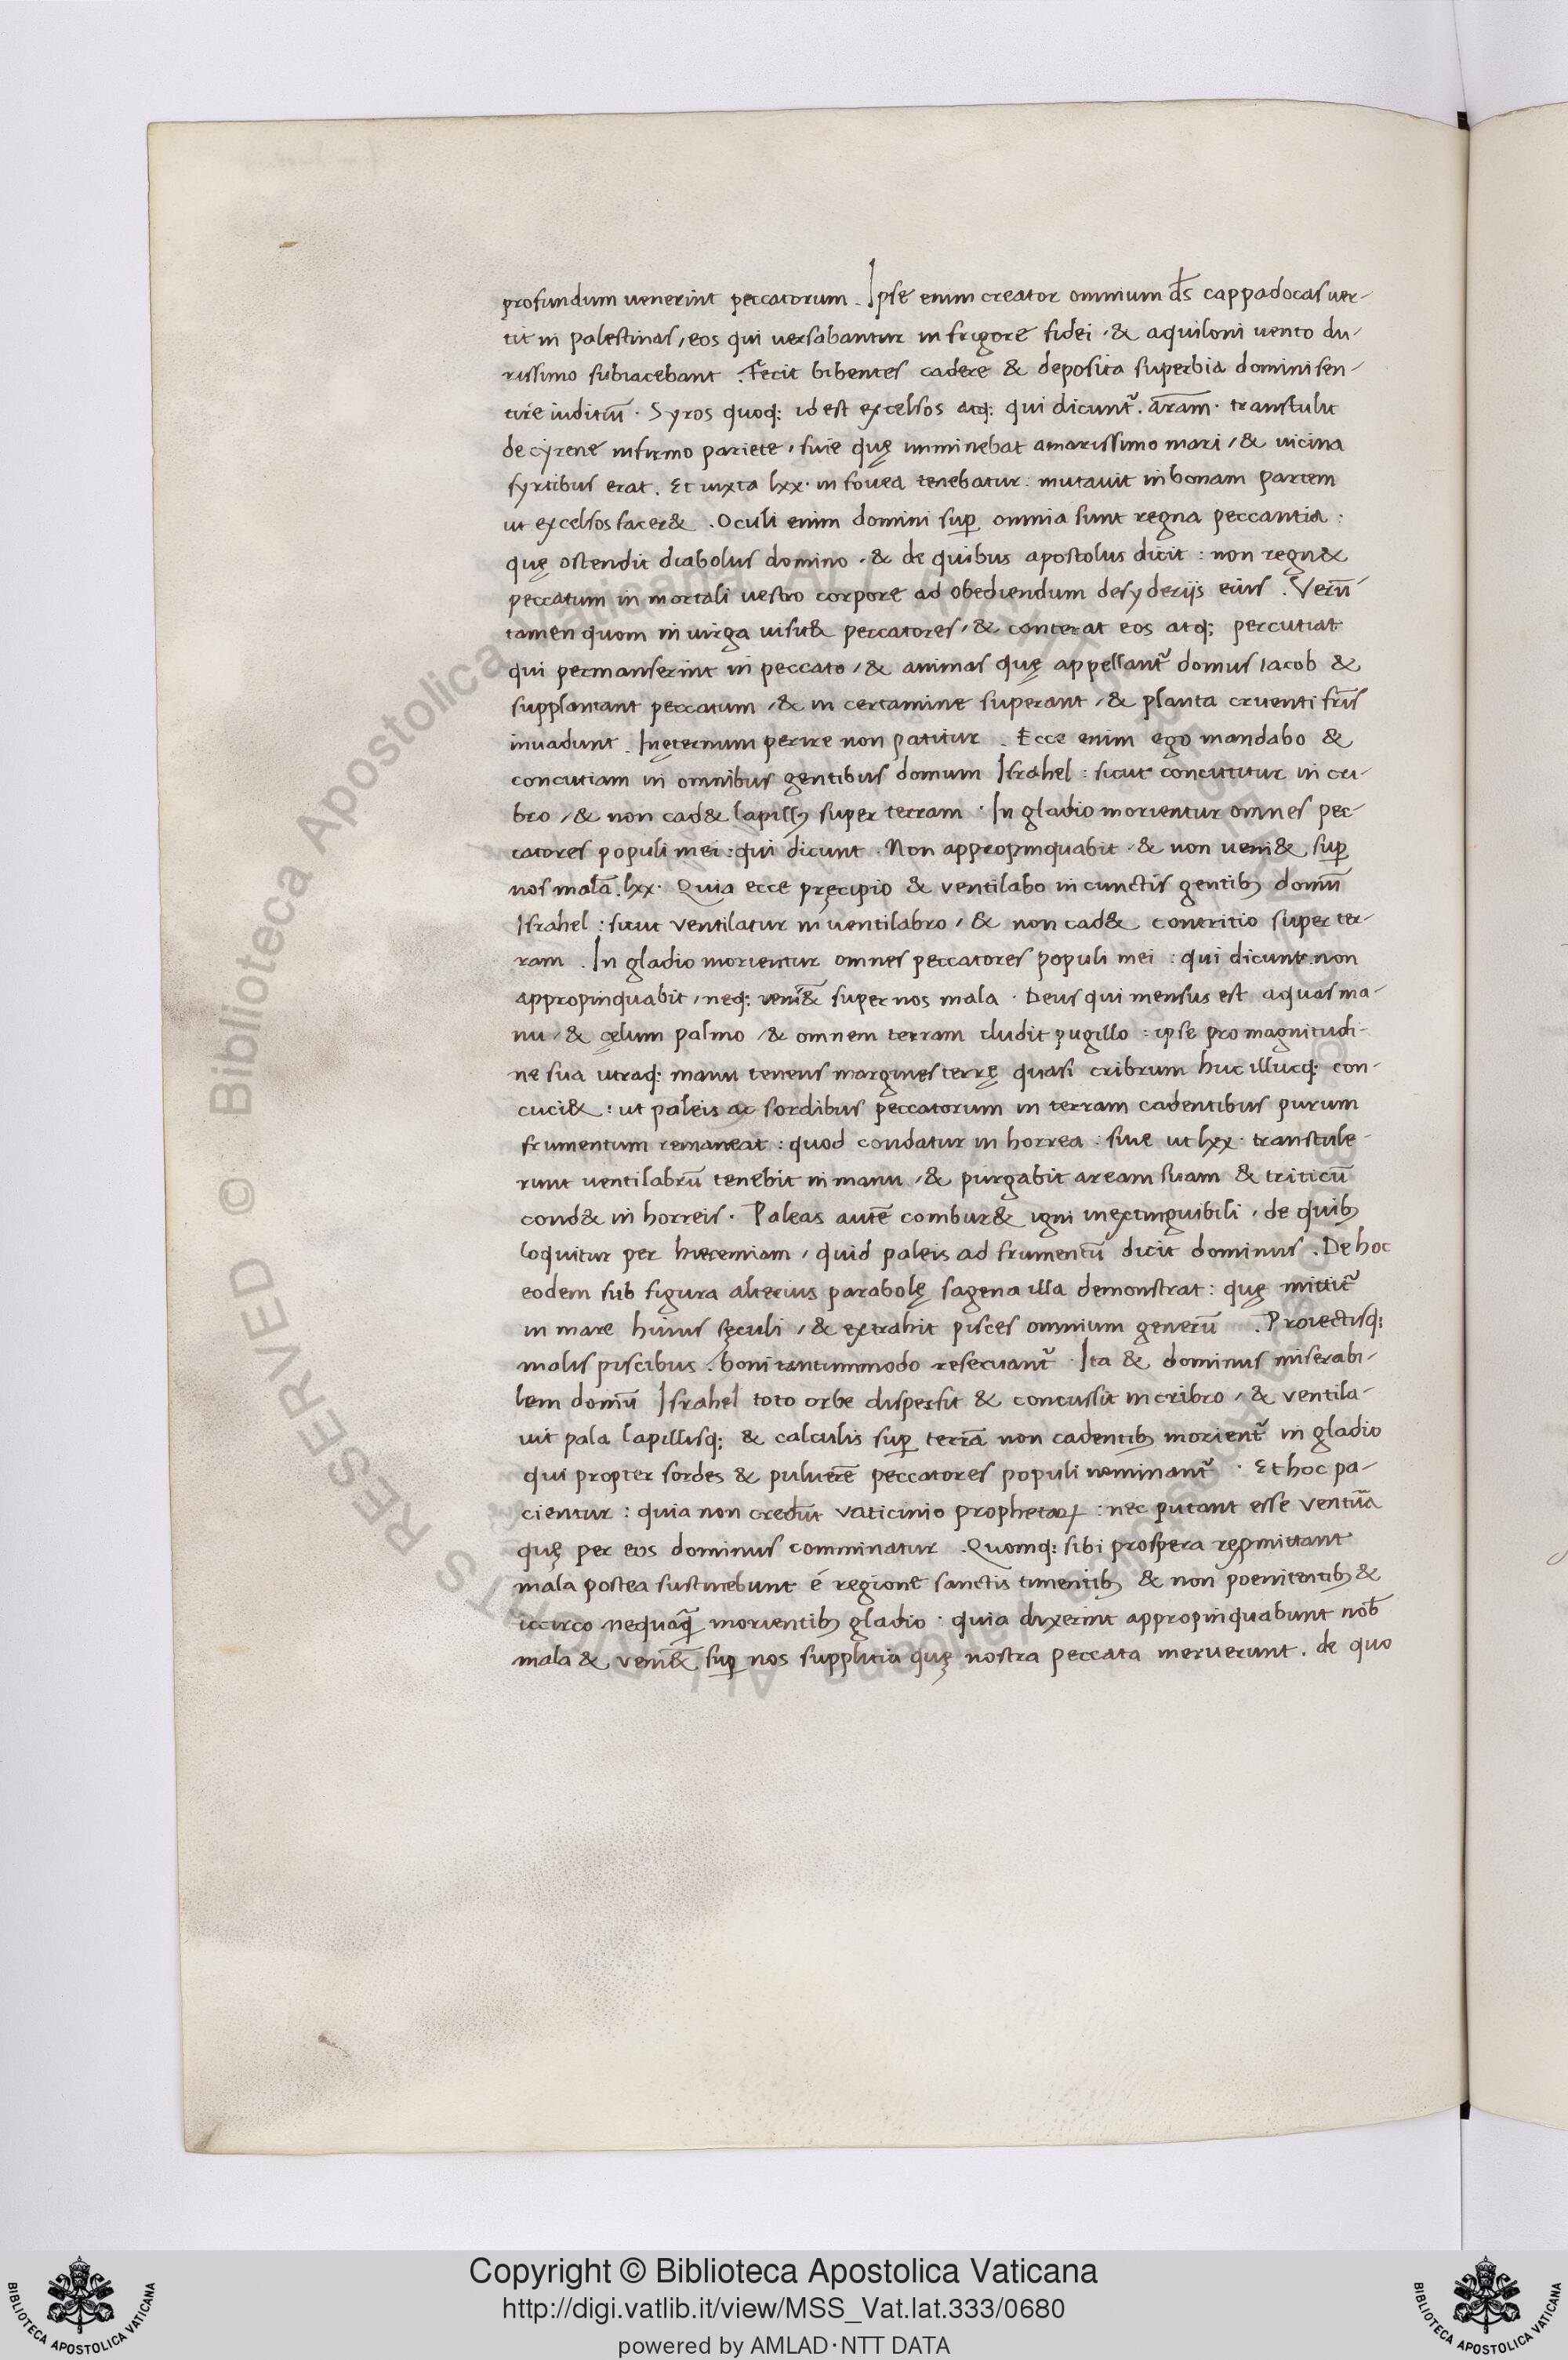 profundum uenerint peccatorum. Ipse enim creator omnium d̄s cappadocas uer-
tit in palestinas, eos qui uersabantur in frigore fidei, & aquiloni uento du-
rissimo subiacebant. Fecit bibentes cadere & deposita superbia domini sen-
tire iuditiū. Syros quoq; id est excelsos atq; qui dicunt᷑. aram̄. transtulit
de cyrene infirmo pariete, siue quę imminebat amarissimo mari, & uicina
syrtibus erat. Et iuxta lxx. in fouea tenebatur: mutauit in bonam partem
ut excelsos facer&. Oculi enim domini suꝑ omnia sunt regna peccantia:
quę ostendit diabolus domino, & de quibus apostolus dicit: non regn&
peccatum in mortali uestro corpore ad obediendum desyderijs eius. Verū
tamen quom in uirga uisit& peccatores, & conterat eos atq; percutiat
qui permanserint in peccato, & animas quę appellant᷑ domus Iacob &
supplantant peccatum, & in certamine superant, & planta cruenti fr̄is
inuadunt. In ęternum perire non patitur. Ecce enim ego mandabo &
concutiam in omnibus gentibus domum Israhel: sicut concutitur in cri-
bro, & non cad& lapillꝰ super terram. In gladio morientur omnes pec-
catores populi mei: qui dicunt. Non appropinquabit, & non ueni& suꝑ
nos malā. lxx. Quia ecce pręcipio & ventilabo in cunctis gentibꝫ domū
Israhel: sicut ventilatur in uentilabro, & non cad& contritio super ter-
ram. In gladio morientur omnes peccatores populi mei: qui dicunt. non
appropinquabit, neq; ueni& super nos mala. Deus qui mensus est aquas ma-
nu, & cęlum palmo, & omnem terram cludit pugillo: ipse pro magnitudi-
ne sua utraq; manu tenens margines terrę quasi cribrum huc illucq; con-
cuci&: ut paleis ac sordibus peccatorum in terram cadentibus purum
frumentum remaneat: quod condatur in horrea: siue ut lxx. transtule-
runt uentilabrū tenebit in manu, & purgabit aream suam & triticū
cond& in horreis. Paleas autē combur& igni inextinguibili, de quibꝫ
loquitur per hieremiam, quid paleis ad frumentū dicit dominus. De hoc
eodem sub figura alterius parabolę sagena illa demonstrat: quę mittit᷑
in mare huius sęculi, & extrahit pisces omnium generū. Proiectisq;
malis piscibus. boni tantummodo reseruant᷑. Ita & dominus miserabi-
lem domū Israhel toto orbe dispersit & concussit in cribro, & ventila-
uit pala lapillisq; & calculis suꝑ terrā non cadentibꝫ morient᷑ in gladio
qui propter sordes & puluerē peccatores populi nominant᷑. Et hoc pa-
cientur: quia non credūt vaticinio prophetaꝝ: nec putant esse ventura
quę per eos dominus comminatur. Quomq; sibi prospera repmittant
mala postea sustinebunt é regione sanctis timentibꝫ & non poenitentibꝫ &
iccirco nequaq̄ morientibꝫ gladio. quia dixerint appropinquabunt nob̄
mala & veni& suꝑ nos supplitia quę nostra peccata meruerunt. de quo
Copyright © Biblioteca Apostolica Vaticana
http://digi.vatlib.it/view/MSS_Vat.lat.333/0680
powered by AMLAD·NTT DATA